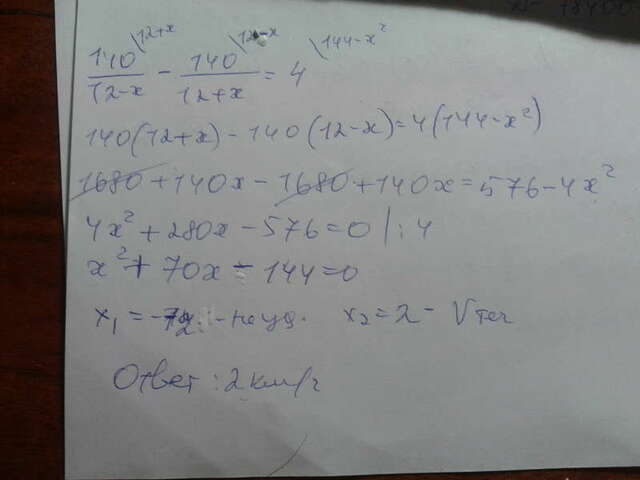 140\12+x / 12-x - 140\12-x / 12+x = 4\144-x²
140(12+x)-140(12-x)=4(144-x²)
1680+140x-1680+140x=576-4x²
4x²+280x-576=0 |:4
x²+70x-144=0
x₁=-72 - не уд. x₂=2- Vтеч
Ответ: 2 км/ч